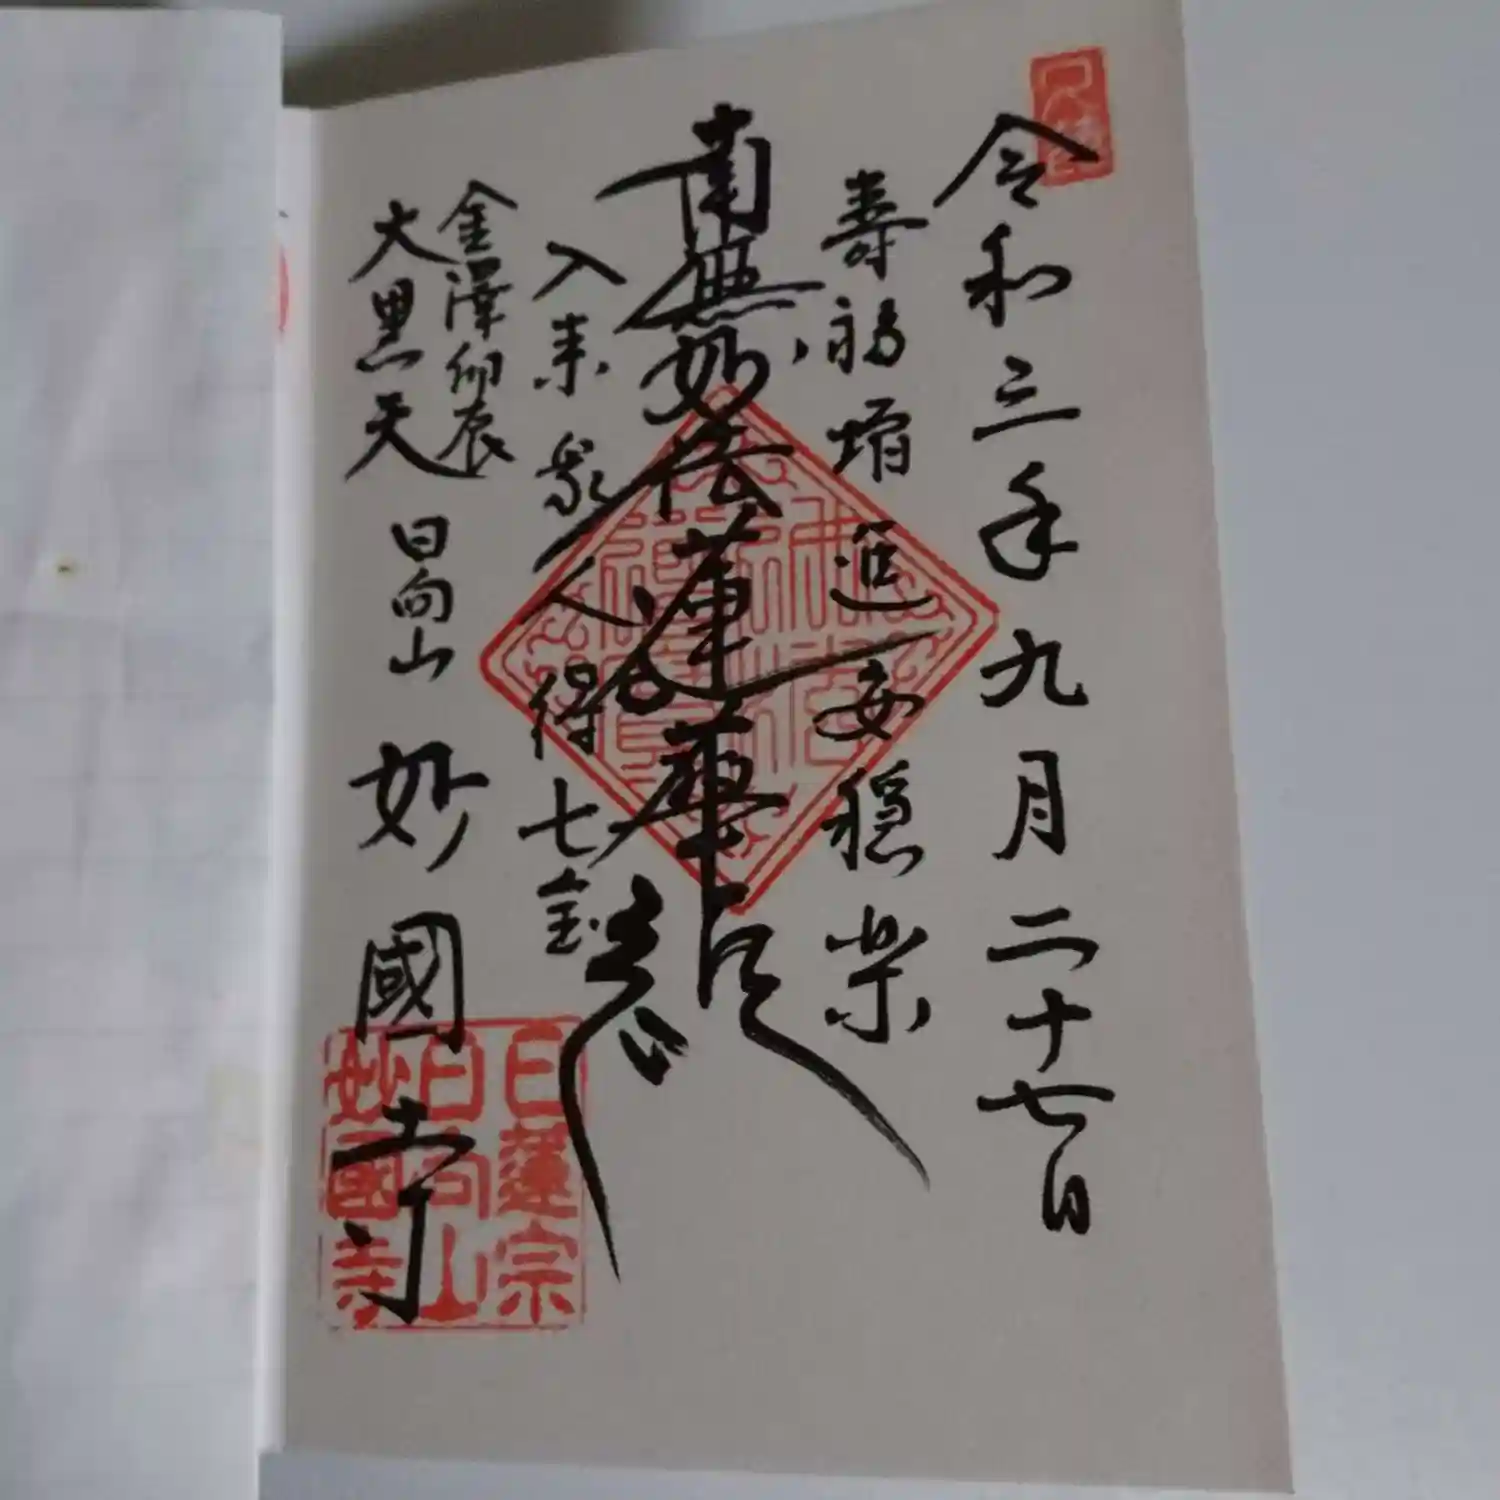 令和三年九月二十七日
壽福増進安穏楽
南無妙法蓮華経
入来衆人得七宝
金澤卯辰
大黒天 日向山 妙國寺
日蓮宗
日向山
妙國寺